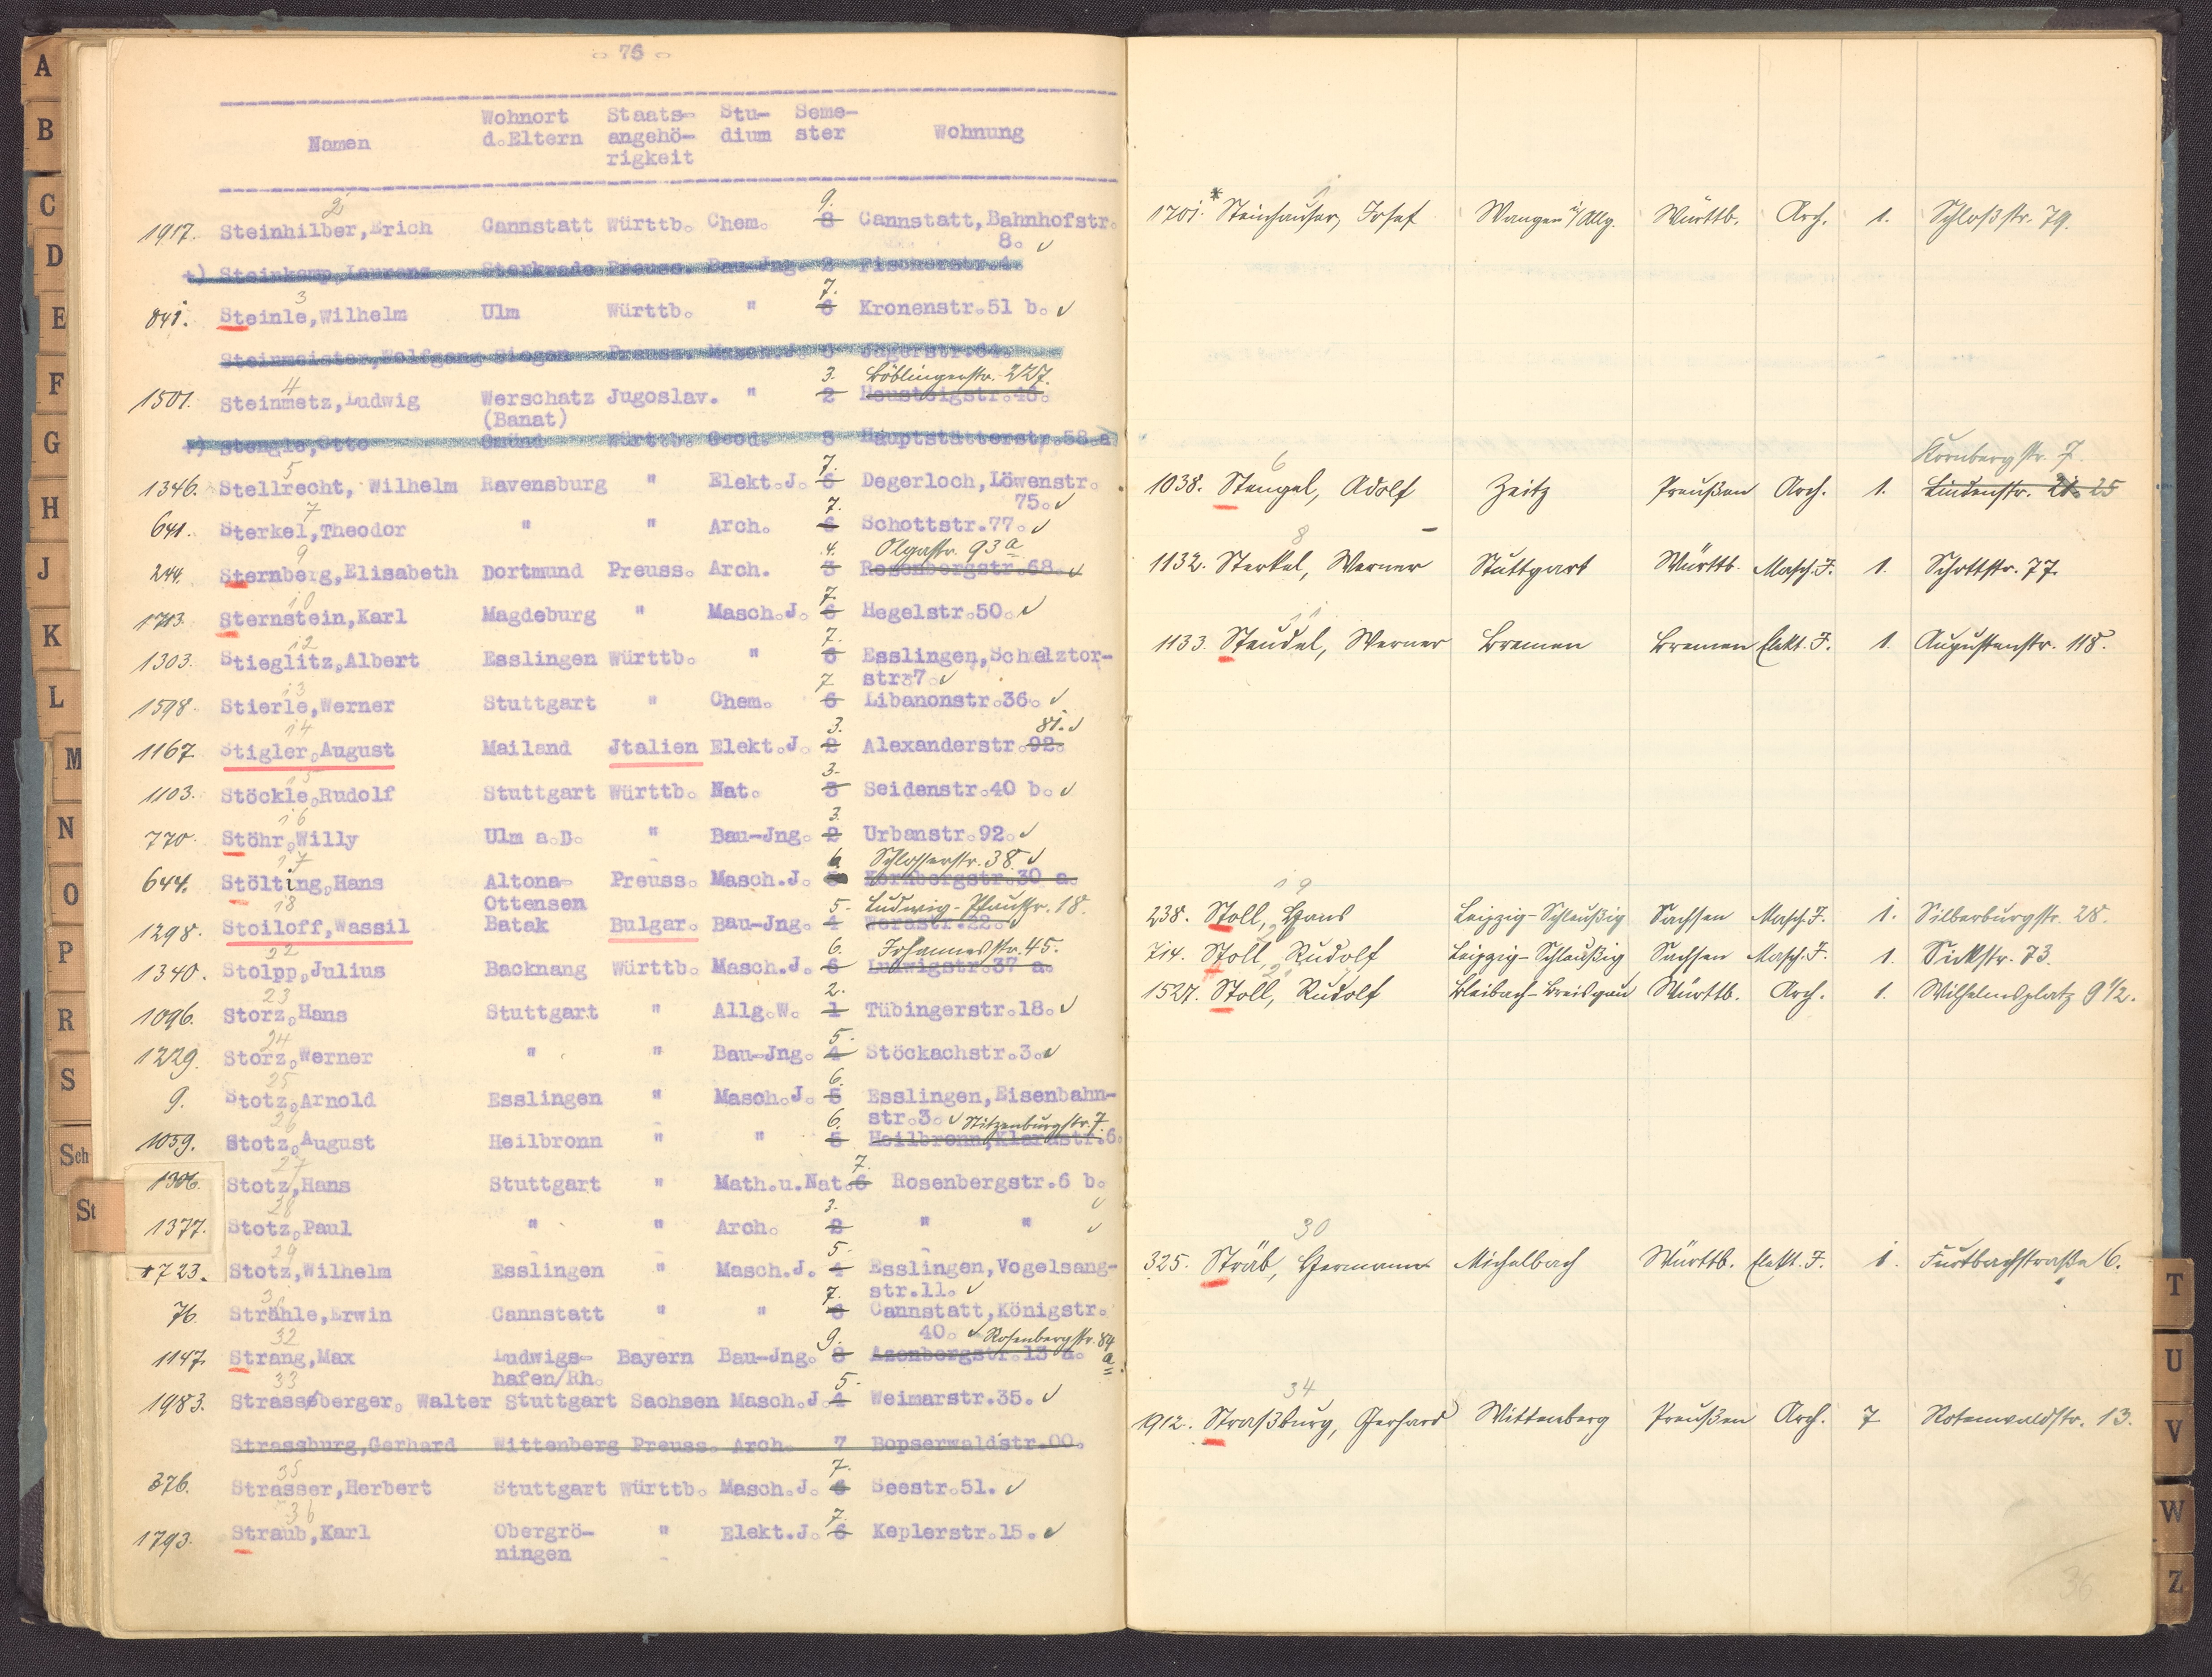 - 76 -
Namen Wohnort d.Eltern Staats-angehö-rigkeit Stu-dium Seme-ster Wohnung
2 9.
1917. Steinhilber,Erich Cannstatt Württb. Chem. 8 Cannstatt,Bahnhofstr.
8. ✓
+) Steinkamp,Laurenz Sterkrade Preuss. Bau-Jng. 2 Fischerstr.4.
3 7.
841. Steinle,Wilhelm Ulm Württb. " 6 Kronenstr.51 b. ✓
Steinmeister,Wolfgang Siegen Preuss. Masch.J. 5 Jägerstr.64.
4 3. Böblingerstr. 227.
1501. Steinmetz,Ludwig Werschatz Jugoslav. " 2 Heusteigstr.48.
(Banat)
+) Stengle,Otto Gmünd Württb. Geod. 5 Hauptstätterstr.58.a
5 7.
1346. Stellrecht, Wilhelm Ravensburg " Elekt.J. 6 Degerloch,Löwenstr.
7 7. 75. ✓
641. Sterkel,Theodor " " Arch. 6 Schottstr.77. ✓
9 4. Olgastr. 93 a
244. Sternberg,Elisabeth Dortmund Preuss. Arch. 3 Rosenbergstr.68. ✓
10 7.
1713. Sternstein,Karl Magdeburg " Masch.J. 6 Hegelstr.50. ✓
12 7.
1303. Stieglitz,Albert Esslingen Württb. " 6 Esslingen,Schelztor-
13 7 str.7. ✓
1598. Stierle,Werner Stuttgart " Chem. 6 Libanonstr.36. ✓
14 3. 81. ✓
1167 Stigler,August Mailand Jtalien Elekt.J. 2 Alexanderstr.92.
15 3.
1103. Stöckle,Rudolf Stuttgart Württb. Nat. 3 Seidenstr.40 b. ✓
16 3.
770. Stöhr,Willy Ulm a.D. " Bau-Jng. 2 Urbanstr.92. ✓
17 6. Schlosserstr. 38 ✓
644. Stölting,Hans Altona- Preuss. Masch.J. Kornbergstr.30 a.
18 Ottensen 5. Ludwig-Pfaustr. 18.
1298. Stoiloff,Wassil Batak Bulgar. Bau-Jng. 4 Werastr.22. ✓
22 6. Johannesstr. 45.
1340. Stolpp,Julius Backnang Württb. Masch.J. 6 Ludwigstr.37 a.
23 2.
1096. Storz,Hans Stuttgart " Allg.W. 1 Tübingerstr.18. ✓
24 5.
1229. Storz,Werner " " Bau-Jng. 4 Stöckachstr.3. ✓
25 6.
9. Stotz,Arnold Esslingen " Masch.J. 5 Esslingen,Eisenbahn-
26 6. str.3. ✓ Nitzenburgstr. 7.
1059. Stotz,August Heilbronn " " 5 Heilbronn,Klarastr.6.
27 7.
1306. Stotz,Hans Stuttgart " Math.u.Nat.6 Rosenbergstr.6 b.
28 3. ✓
1377. Stotz,Paul " " Arch. 2 " " ✓
29 5.
1723. Stotz,Wilhelm Esslingen " Masch.J. 4 Esslingen,Vogelsang-
31 7. str.11. ✓
76. Strähle,Erwin Cannstatt " " 6 Cannstatt,Königstr.
32 9. 40. ✓ Rosenbergstr. 84 a.
1147. Strang,Max Ludwigs- Bayern Bau-Jng. 8 Azenbergstr.13 a.
33 hafen/Rh. 5.
1983. Strassberger, Walter Stuttgart Sachsen Masch.J 4 Weimarstr.35. ✓
Strassburg,Gerhard Wittenberg Preuss. Arch. 7 Bopserwaldstr.00.
35 7.
376. Strasser,Herbert Stuttgart Württb. Masch.J. 6 Seestr.51. ✓
36 7.
1793. Straub,Karl Obergrö- " Elekt.J. 6 Keplerstr.15. ✓
ningen
1
1701. * Steinhauser, Josef Wangen i/Allg. Württb. Arch. 1. Schloßstr. 79.
6 Kornbergstr. 7.
1038. Stengel, Adolf Zeitz Preußen Arch. 1. Lindenstr. 21. 25
8
1132. Sterkel, Werner Stuttgart Württb. Masch.J. 1. Schottstr. 77.
11
1133. Steudel, Werner Bremen Bremen Elekt.J. 1. Augustenstr. 118.
19
238. Stoll, Hans Leipzig-Schleußig Sachsen Masch.J. 1. Silberburgstr. 28.
714. Stoll, Rudolf Leipzig-Schleußig Sachsen Masch.J. 1. Sickstr. 73.
1527. Stoll, Rudolf Bleibach-Breisgau Württb. Arch. 1. Wilhelmsplatz 9 1/2.
30
325. Sträb, Hermann Michelbach Württb. Elekt.J. 1. Furtbachstraße 6.
34
1912. Straßburg, Gerhard Wittenberg Preußen Arch. 7 Rotenwaldstr. 13.
36
A
B
C
D
E
F
G
H
J
K
L
M
N
O
P
R
S
Sch
St
T
U
V
W
Z